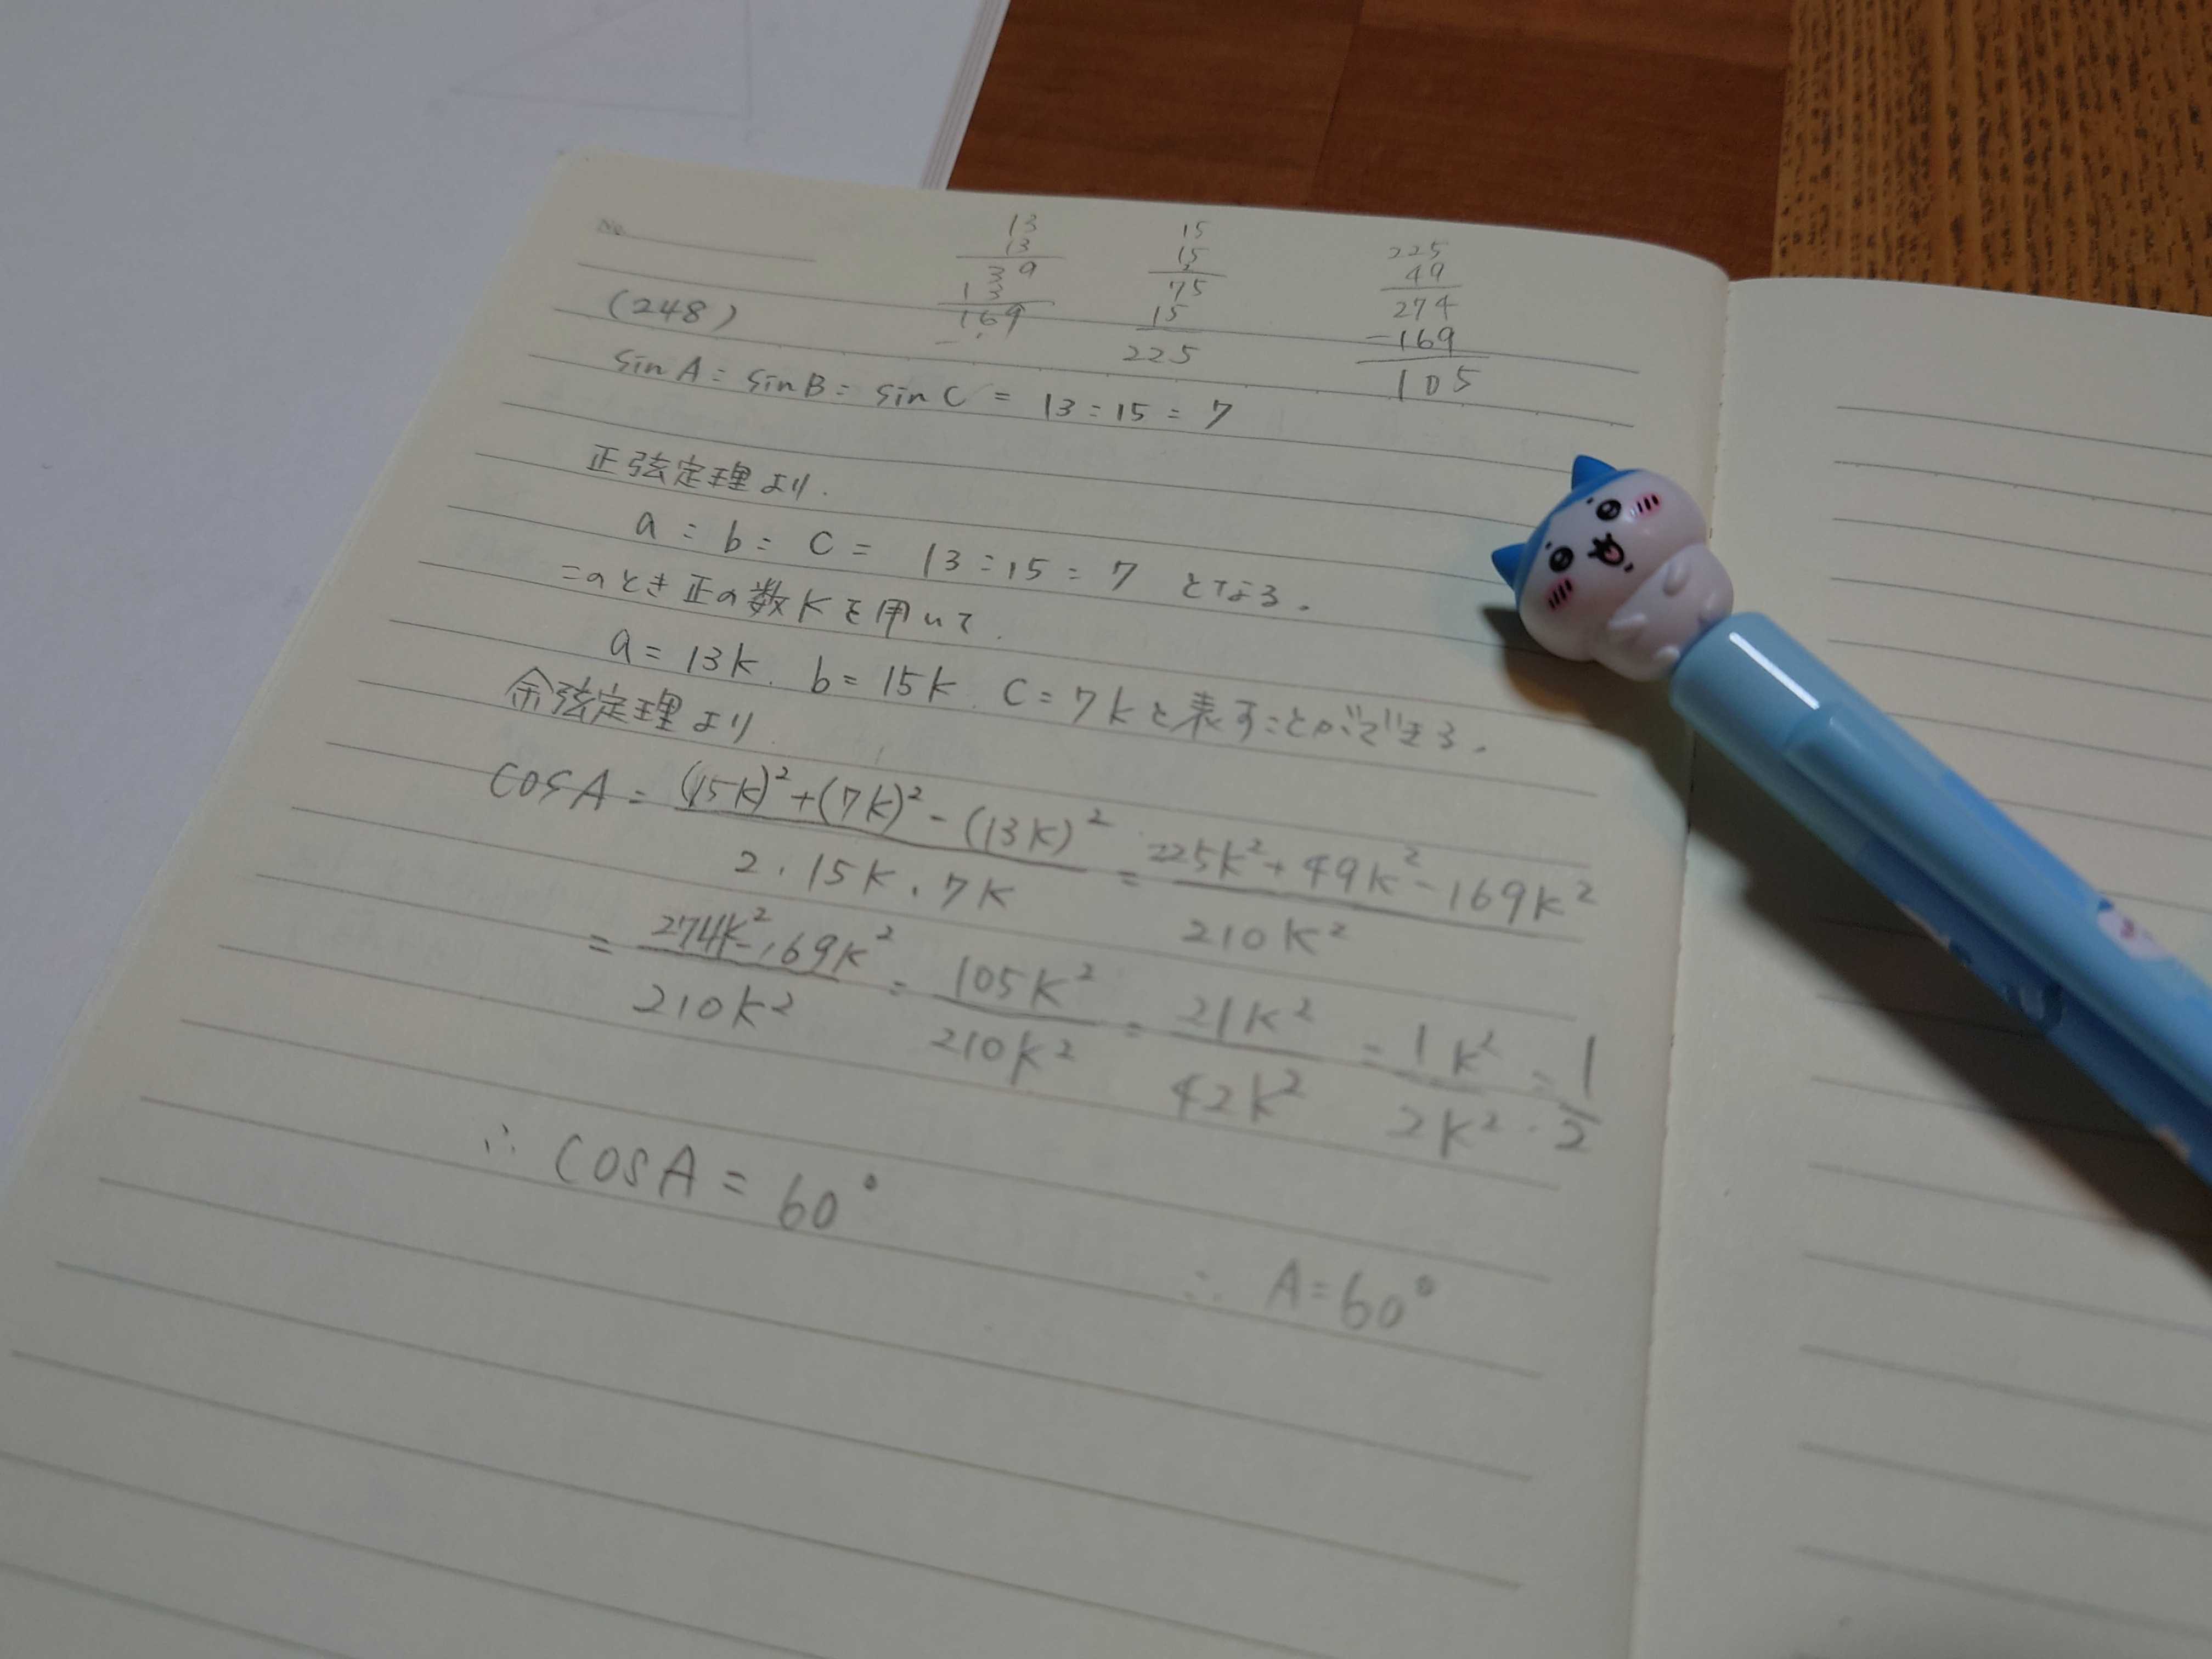 No.
13
13
39
13
169
15
15
75
15
225
225
49
274
-169
105
(248)
sin A : sin B : sin C = 13 : 15 : 7
正弦定理より.
a : b : c = 13 : 15 : 7 となる.
このとき正の数kを用いて.
a = 13k. b = 15k. c = 7k と表すことができる.
余弦定理より
cosA = \frac{(15k)²+(7k)²-(13k)²}{2・15k・7k} = \frac{225k²+49k²-169k²}{210k²}
= \frac{274k²-169k²}{210k²} = \frac{105k²}{210k²} = \frac{21k²}{42k²} = \frac{1k²}{2k²} = \frac{1}{2}
∴ cosA = 60°
∴ A = 60°